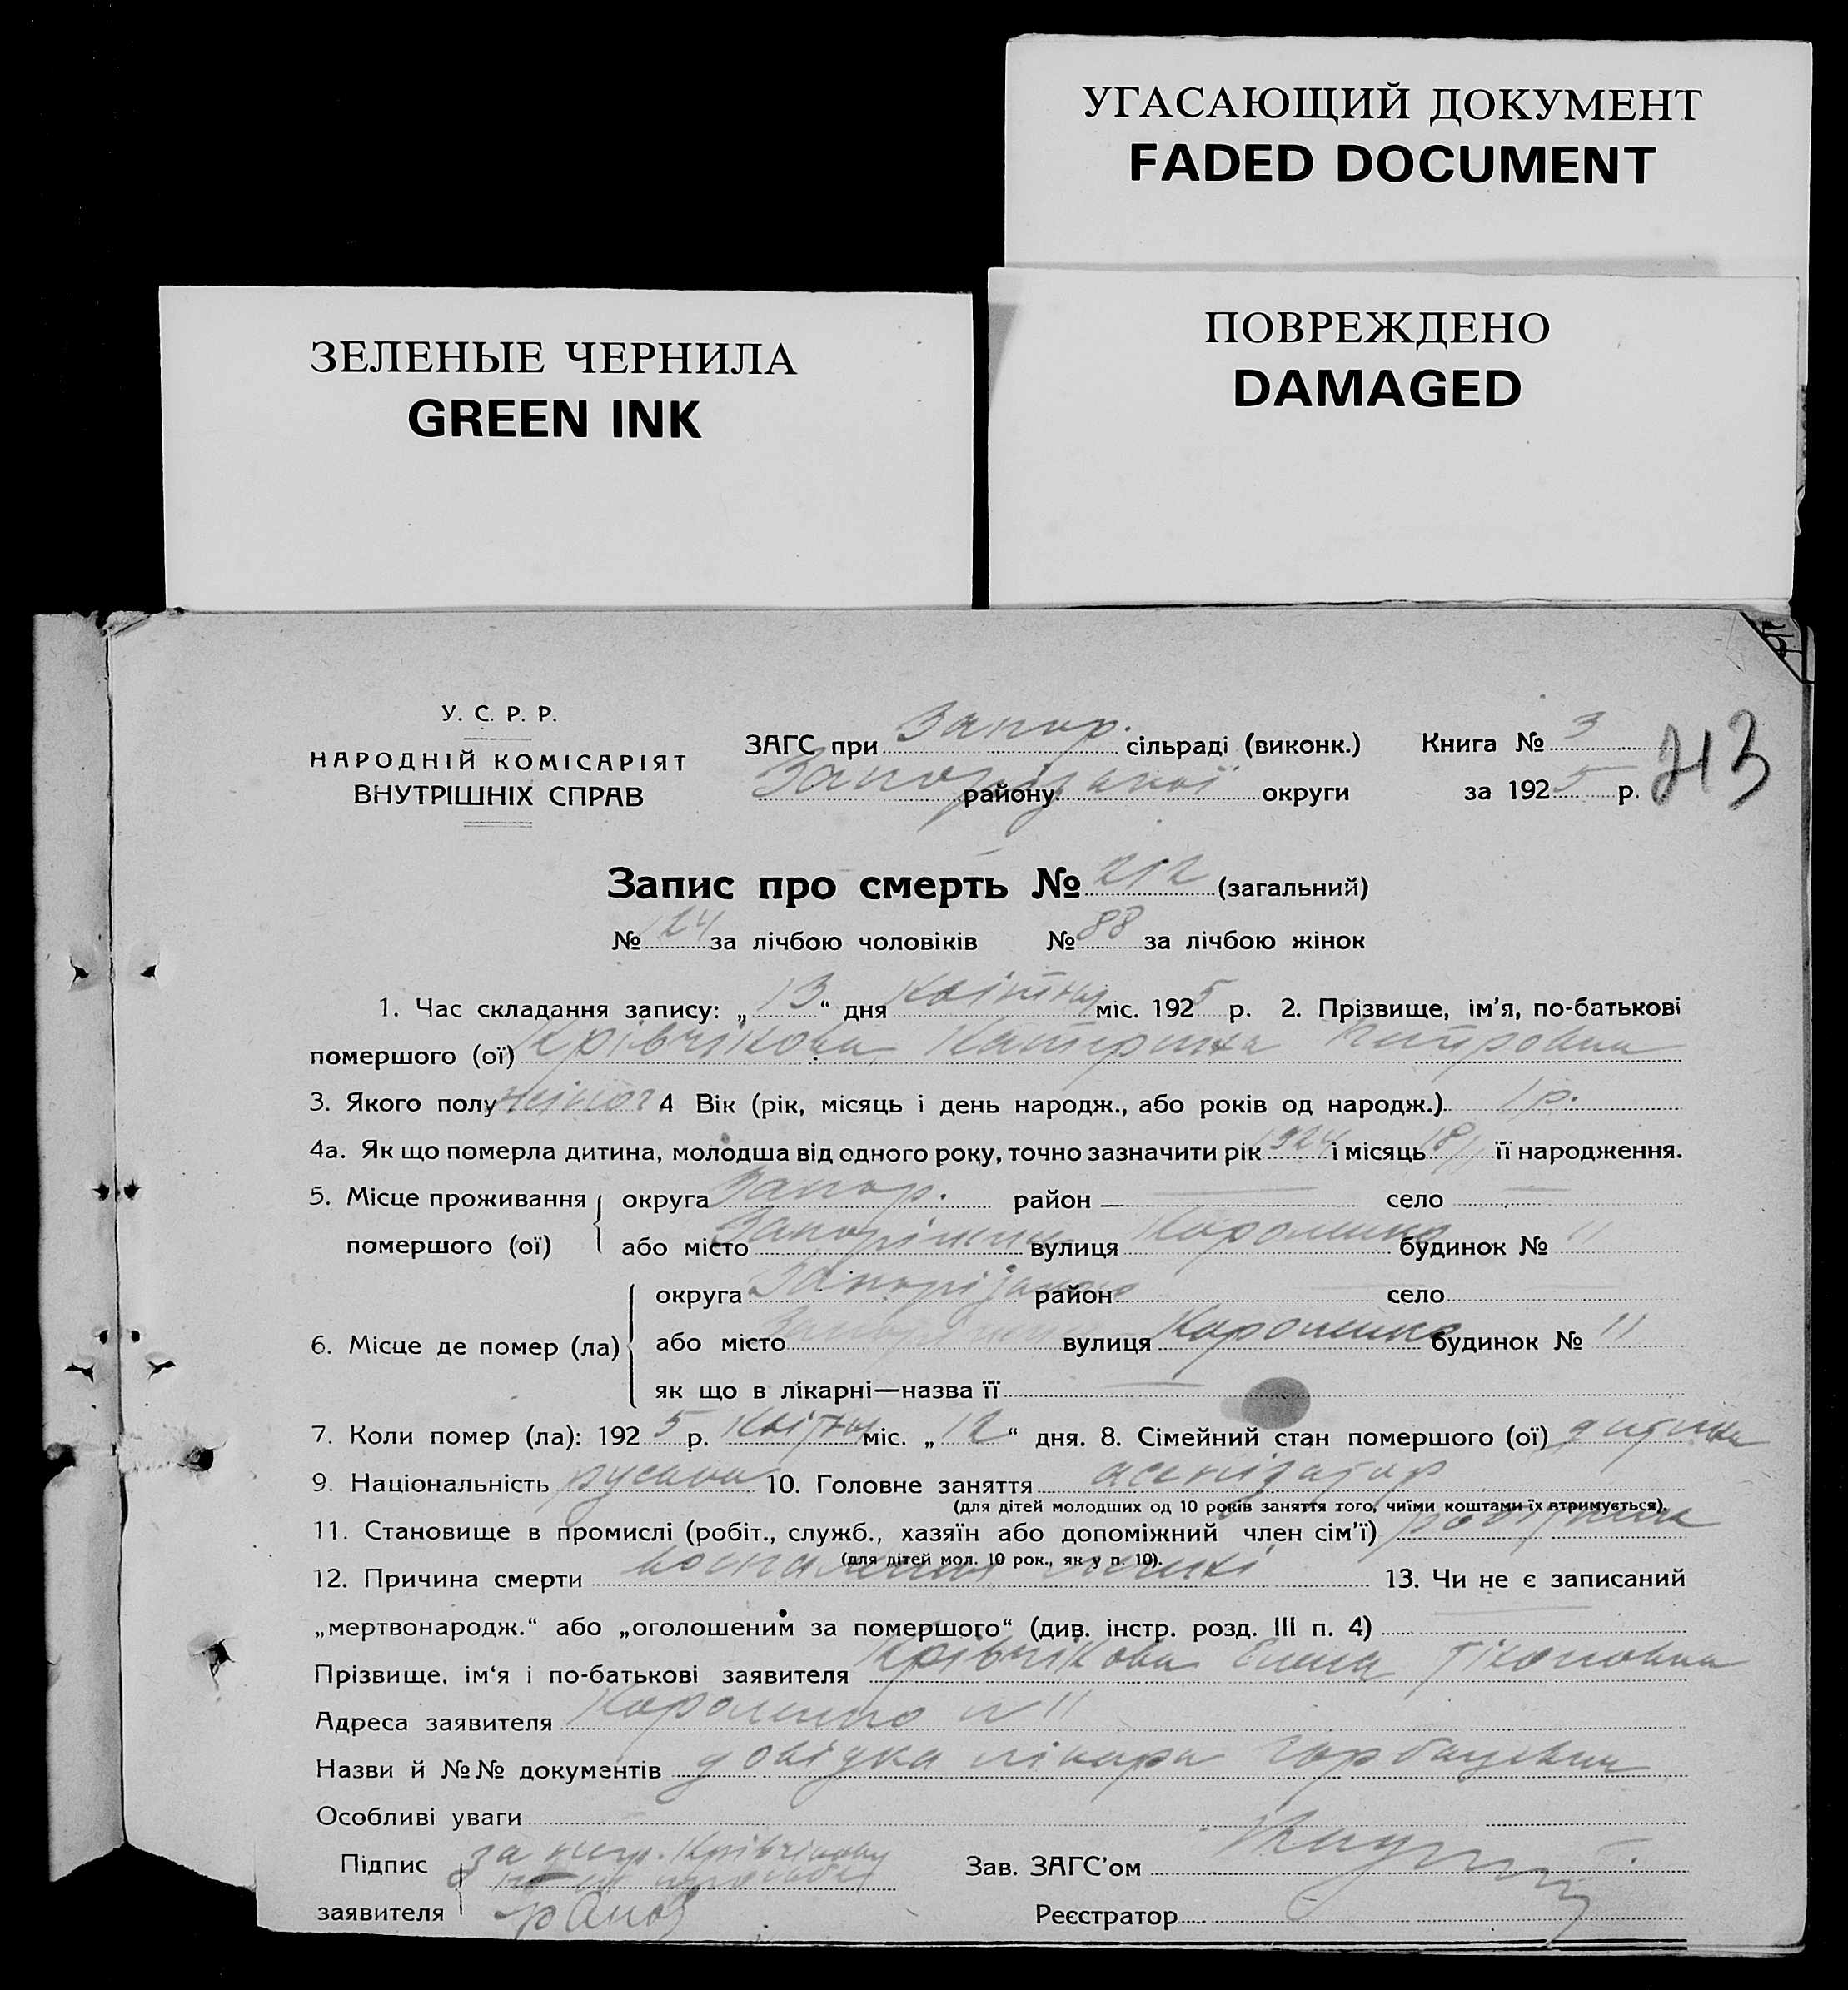 УГАСАЮЩИЙ ДОКУМЕНТ
FADED DOCUMENT
ЗЕЛЕНЫЕ ЧЕРНИЛА
GREEN INK
ПОВРЕЖДЕНО
DAMAGED
У. С. Р. Р.
НАРОДНІЙ КОМІСАРІЯТ
ВНУТРІШНІХ СПРАВ
ЗАГС при Запор. сільраді (виконк.) Книга № 3
району Запорізької округи за 1925 р.
213
Запис про смерть № 212 (загальний)
№ 124 за лічбою чоловіків № 88 за лічбою жінок
1. Час складання запису: „13“ дня квітня міс. 1925 р. 2. Прізвище, ім'я, по-батькові
помершого (ої) Крівчікова Катерина Петровна
3. Якого полу жіноч 4 Вік (рік, місяць і день народж., або років од народж.) 1 р.
4а. Як що померла дитина, молодша від одного року, точно зазначити рік 1924 і місяць її народження.
5. Місце проживання округа Запор. район — село —
помершого (ої) або місто Запоріжжя вулиця Короленко будинок № 11
округа Запорізька район село
6. Місце де помер (ла) або місто Запоріжжя вулиця Короленко будинок № 11
як що в лікарні—назва її —
7. Коли помер (ла): 1925 р. Квітня міс. „12“ дня. 8. Сімейний стан помершого (ої) дитина
9. Національність руська 10. Головне заняття асенізатор
(для дітей молодших од 10 років заняття того, чиїми коштами їх втримується).
11. Становище в промислі (робіт., служб., хазяїн або допоміжний член сім'ї) робітник
(для дітей мол. 10 рок., як у п. 10).
12. Причина смерти воспаление 13. Чи не є записаний
„мертвонародж.“ або „оголошеним за помершого“ (див. інстр. розд. III п. 4) —
Прізвище, ім'я і по-батькові заявителя Крівчікова Елена Тіхоновна
Адреса заявителя Короленко № 11
Назви й №№ документів довідка лікаря
Особливі уваги
Підпис за негр. Крівчікову
заявителя
Зав. ЗАГС'ом
Реєстратор